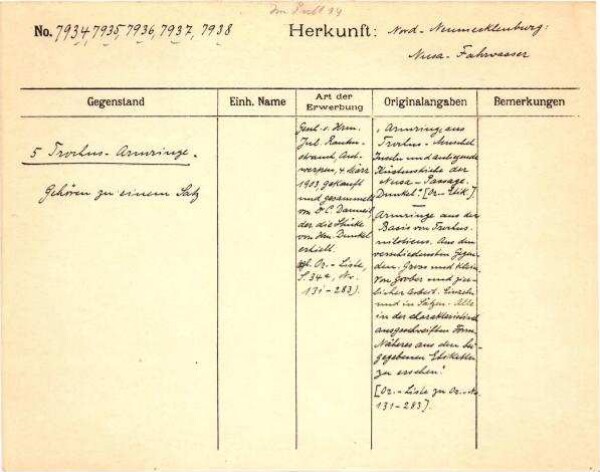 Im Pult 14
No. 7934, 7935, 7936, 7937, 7938
Herkunft: Nord-Neumecklenburg:
Nusa-Fahrwasser
Gegenstand
Einh. Name
Art der
Erwerbung
Originalangaben
Bemerkungen
5 Trochus-Armringe.
Gehören zu einem Satz
v. Hrn.
Jul.
4 März
1903, gekauft
und gesammelt
von
der die Stücke
von Hrn. Dunkel
erhielt.
cf. Or.-Liste,
S. 34a, No.
131-283).
"Armringe aus
Trochus-Muschel
Inseln und anliegende
Küstenstriche der
Nusa-Passage
Dunkel." [Or.-Etik.].
Armringe aus der
Basis von Trochus
niloticus. Aus den
verschiedensten Gegen-
den. Gross und klein.
Von grober und zier-
licher Arbeit. Einzeln
und in Sätzen. Alle
in der charakteristisch
ausgeschweiften Form.
Näheres aus den bei-
gegebenen Etiketten
zu ersehen."
[Or.-Liste zu Or.-No.
131-283].